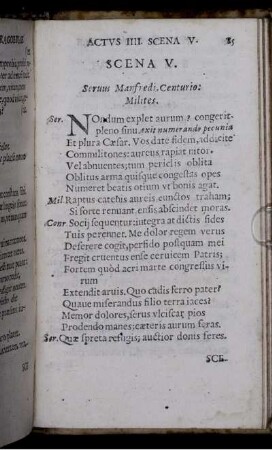 ACTVS IIII. SCENA V. 85
SCENA V.
Seruus Manfredi. Centurio:
Milites.
Ser. NOndum explet aurum? congerit
pleno sinu, exit numerando pecunia
Et plura Cæsar. Vos date fidem, addicite
Commilitones: aureus rapiat nitor
Vel abnuentes; tum periclis oblita
Oblitus arma quisque congestas opes
Numeret beatis otium vt bonis agat.
Mil. Raptus cateruis aureis cunctos traham;
Si forte renuant ensis abscindet moras.
Cent. Socij sequentur: integra at dictis fides
Tuis perennet. Me dolor regem verus
Deserere cogit, perfido postquam mei
Fregit cruentus ense ceruicem Patris;
Fortem quòd acri marte congressus vi-
rum
Extendit aruis. Quo cadis ferro pater?
Quaue miserandus filio terra iaces?
Memor dolores, serus vlciscar pios
Prodendo manes; cæteris aurum feras.
Ser. Quæ spreta refugis; auctior donis feres.
SCE-